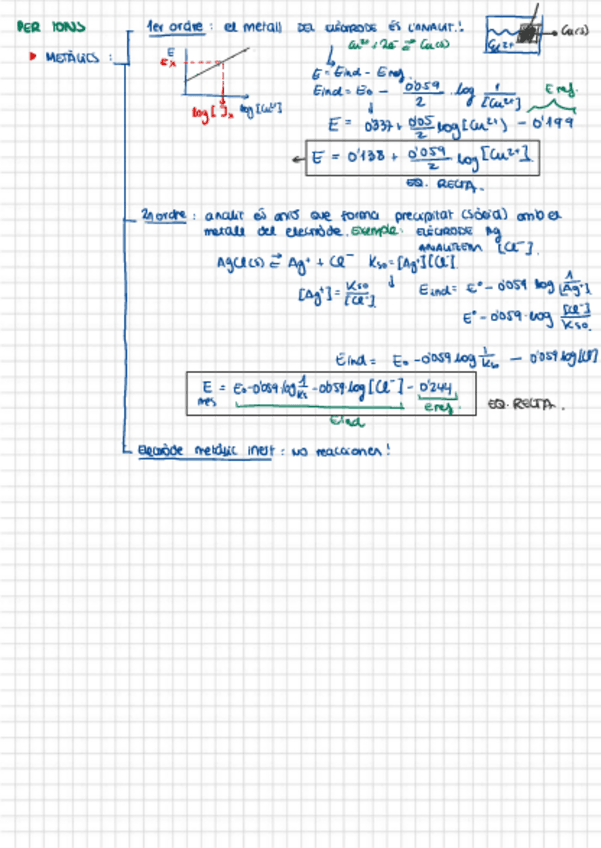 PER IONS
▶ METÀL·LICS :
1er ordre : el metall DEL ELÈCTRODE ÉS L'ANALIT.!
Cu²⁺ + 2e⁻ ⇌ Cu(s)
Cu²⁺ → Cu(s)
E
Ex
log[ ]x log[Cu²⁺]
E = Eind - Eref.
Eind = E₀ - 0'059/2 · log 1/[Cu²⁺] Eref.
E = 0'337 + 0'05/2 log[Cu²⁺) - 0'199
← E = 0'138 + 0'059/2 log[Cu²⁺].
EQ. RECTA.
2n ordre : analit és anió que forma precipitat (sòlid) amb el
metall del electrode. Exemple: ELÈCTRODE Ag
ANALITZEM [Cl⁻].
AgCl(s) ⇌ Ag⁺ + Cl⁻ Kso = [Ag⁺][Cl⁻]
[Ag⁺] = Kso/[Cl⁻] Eind = E° - 0'059 log 1/[Ag⁺]
E° - 0'059 · log [Cl⁻]/Kso.
Eind = E₀ - 0'059 log 1/Kso - 0'059 log[Cl⁻]
E mes = E₀ - 0'059 · log 1/Ks - 0'059 · log[Cl⁻] - 0'244 EQ. RECTA.
Eind Eref.
Elèctrode metàl·lic inert : NO reaccionen!